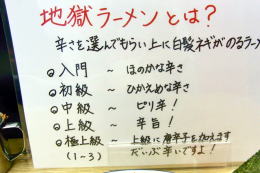 地獄ラーメンとは?
辛さを選んでもらい上に白髪ネギがのるラー
◎入門 ~ ほのかな辛さ
◎初級 ~ ひかえめな辛さ
◎中級 ~ ピリ辛!
◎上級 ~ 辛旨!
◎極上級 ~ 上級に唐辛子を加えます
(1~3) だいぶ辛いですよ!